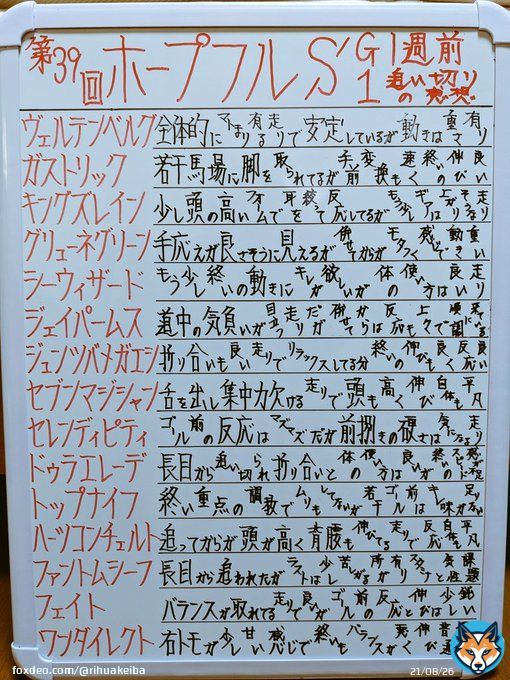 第39回ホープフルS G1 1週前追い切りの感想
ヴェルテンベルグ 全体的にまとまり有る走りで安定しているが動きは重さ有り
ガストリック 若干馬場に脚を取られてるが手前変換も速く終いの伸び良い
キングズレイン 少し頭の高いフォームで耳を絞って反応してるがもう少しギアは上がりそうな走り
グリューネグリーン 手応えが良さそうに見えるが併せてからがモタつく感じで動き重い
シーウィザード もう少し終いの動きにキレが欲しいが体の使い方は良い走り
ジェイパームス 道中の気負いが目立つ走りだが併せてからは反応も上々で
ジュンツバメガエシ 折り合いも良い走りでリラックスしてる分終いの伸びも良く反応良い
セブンマジシャン 舌を出し集中力欠ける走りで頭も高く伸び自体も平凡
セレンディピティ ゴール前の反応はマズマズだが前捌きの硬さは気になる走り
ドゥラエレーデ 長目から追い切られ折り合いと体の使い方は良いが終いの
トップナイフ 終い重点の調教でムリもしてないが若干ゴール前は
ハーツコンチェルト 追ってからが頭が高く背腰も伸びてる走りで反応自体も平凡
ファントムシーフ 長目から追われたがラストは少し苦しがる所がありと課題
フェイト バランスが取れてる走りで良いがゴール前の反応と伸びは少し
ワンダイレクト 右トモが少し甘い感じで終いもバランスが悪く伸び普通
foxdeo.com/@rihuakeiba
21/08/26